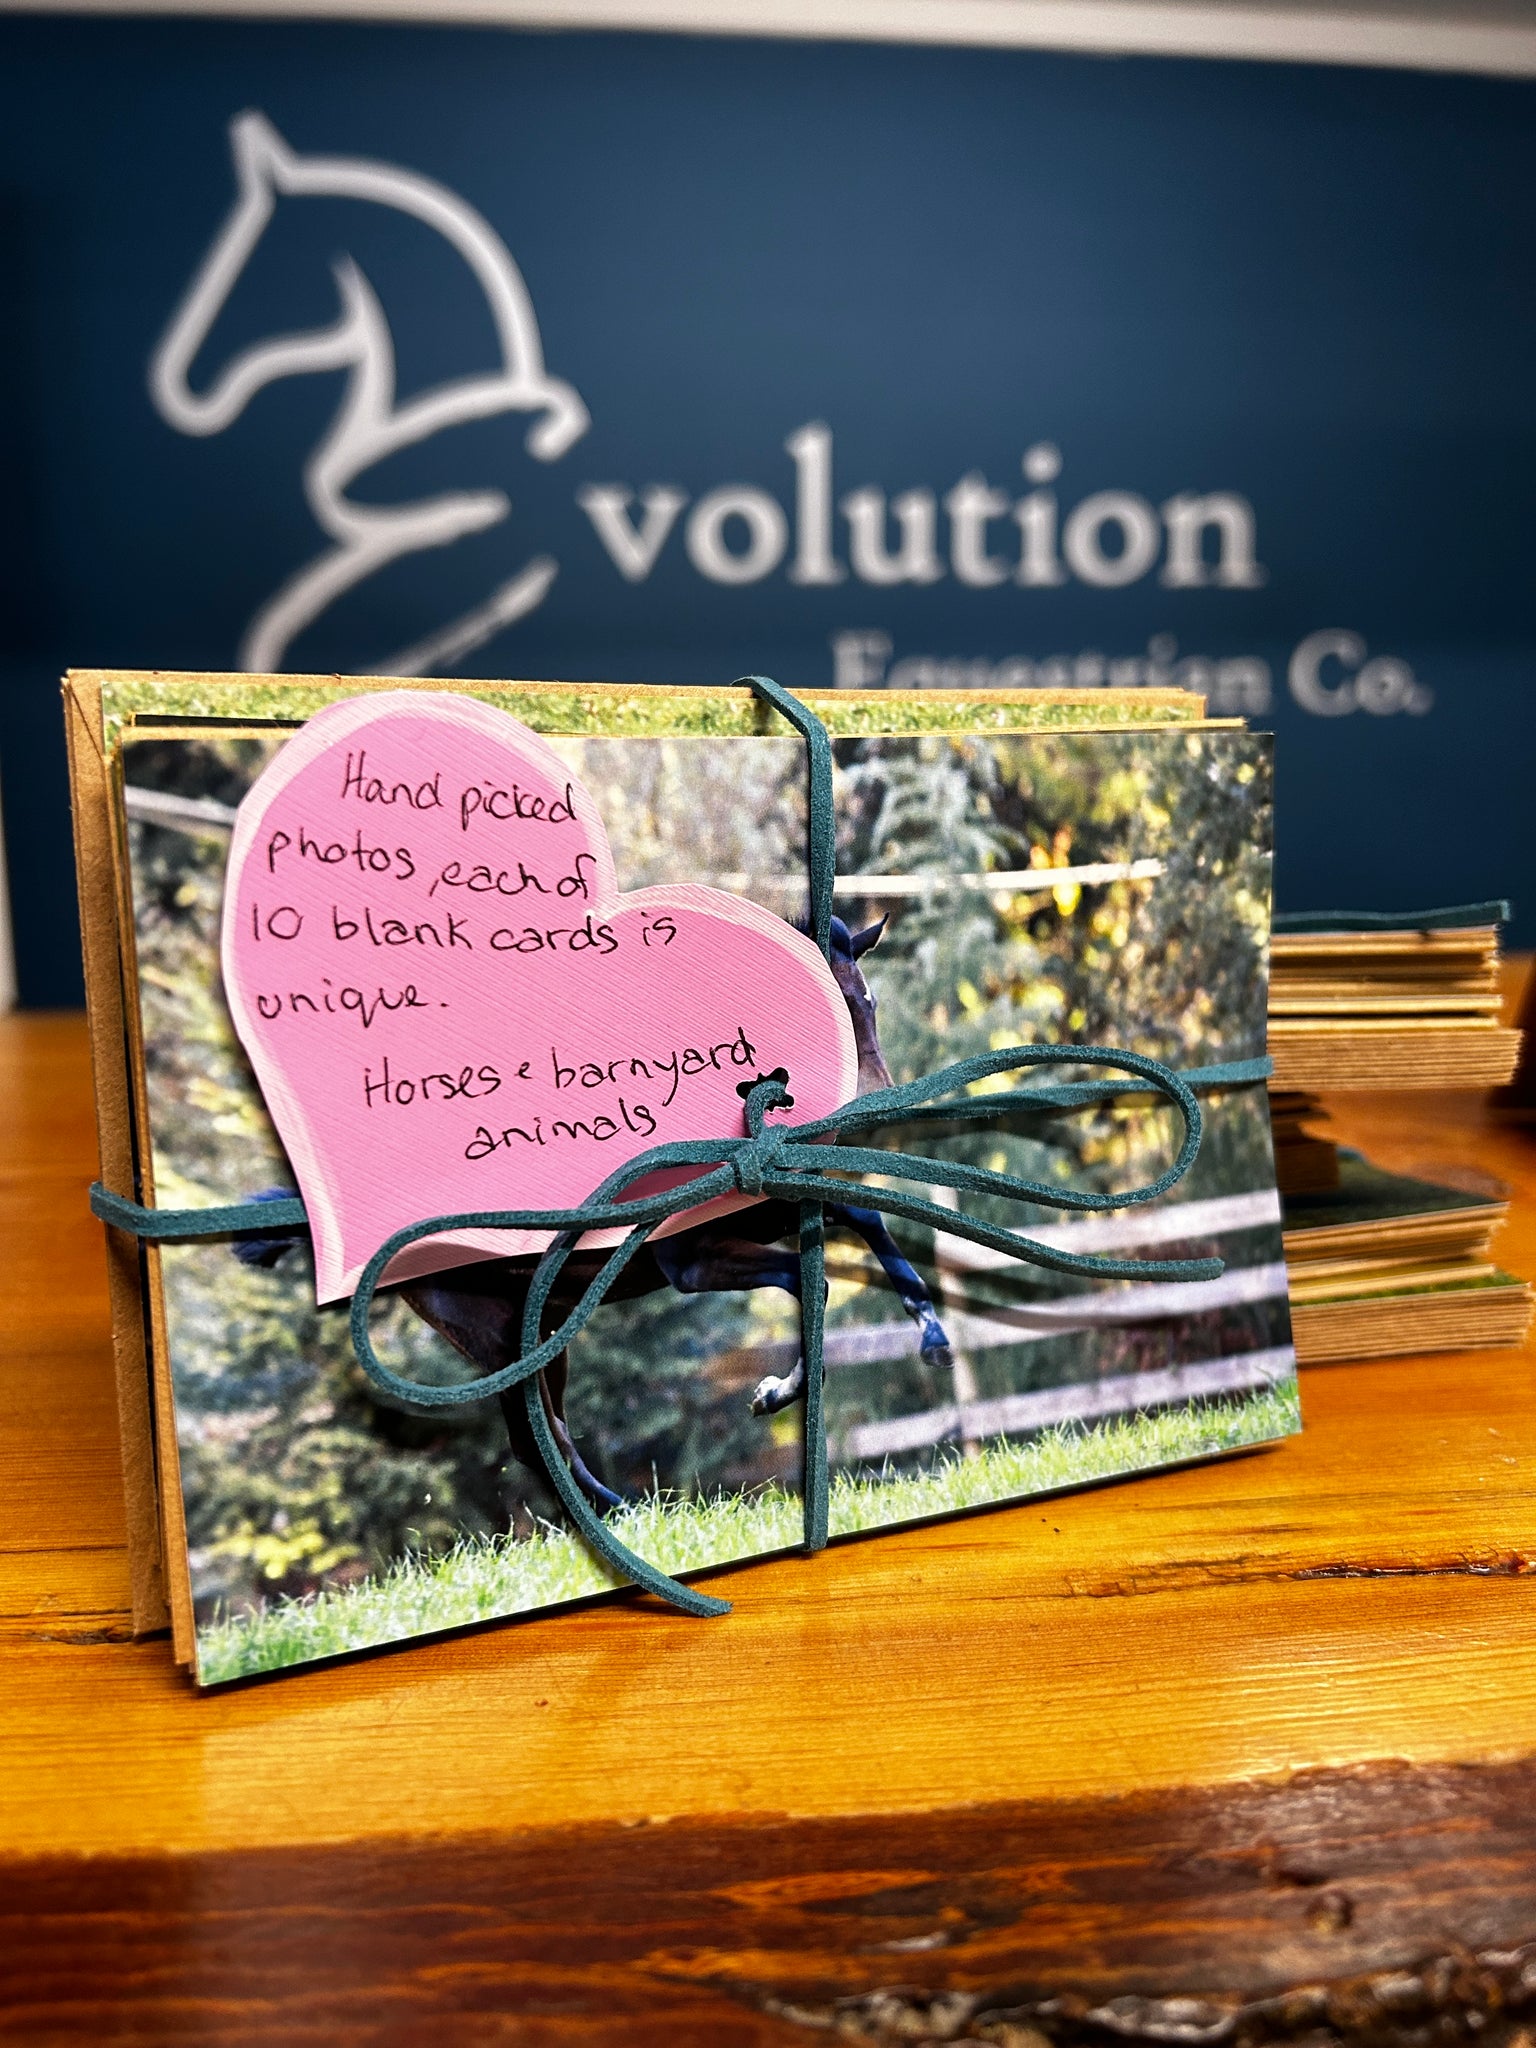 Evolution
Equestrian Co.
Hand picked
photos, each of
10 blank cards is
unique.
Horses & barnyard
animals